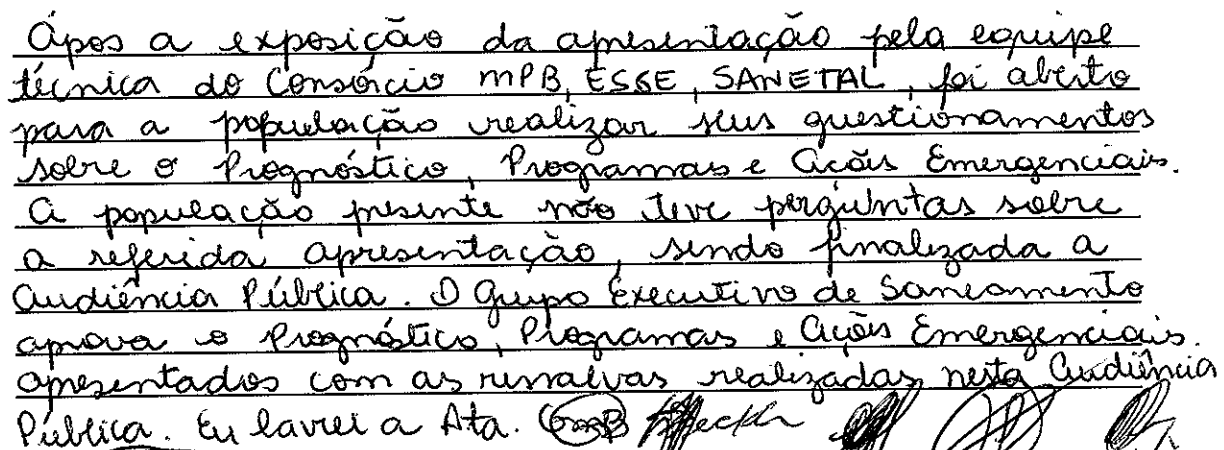 Após a exposição da apresentação pela equipe
técnica do Consórcio MPB, ESSE, SANETAL, foi aberto
para a população realizar seus questionamentos
sobre o Prognóstico, Programas e Ações Emergenciais.
A população presente não teve perguntas sobre
a referida apresentação, sendo finalizada a
Audiência Pública. O Grupo Executivo de Saneamento
aprova o Prognóstico, Programas e Ações Emergenciais.
apresentados com as ressalvas realizadas nesta Audiência
Pública. Eu lavrei a Ata.